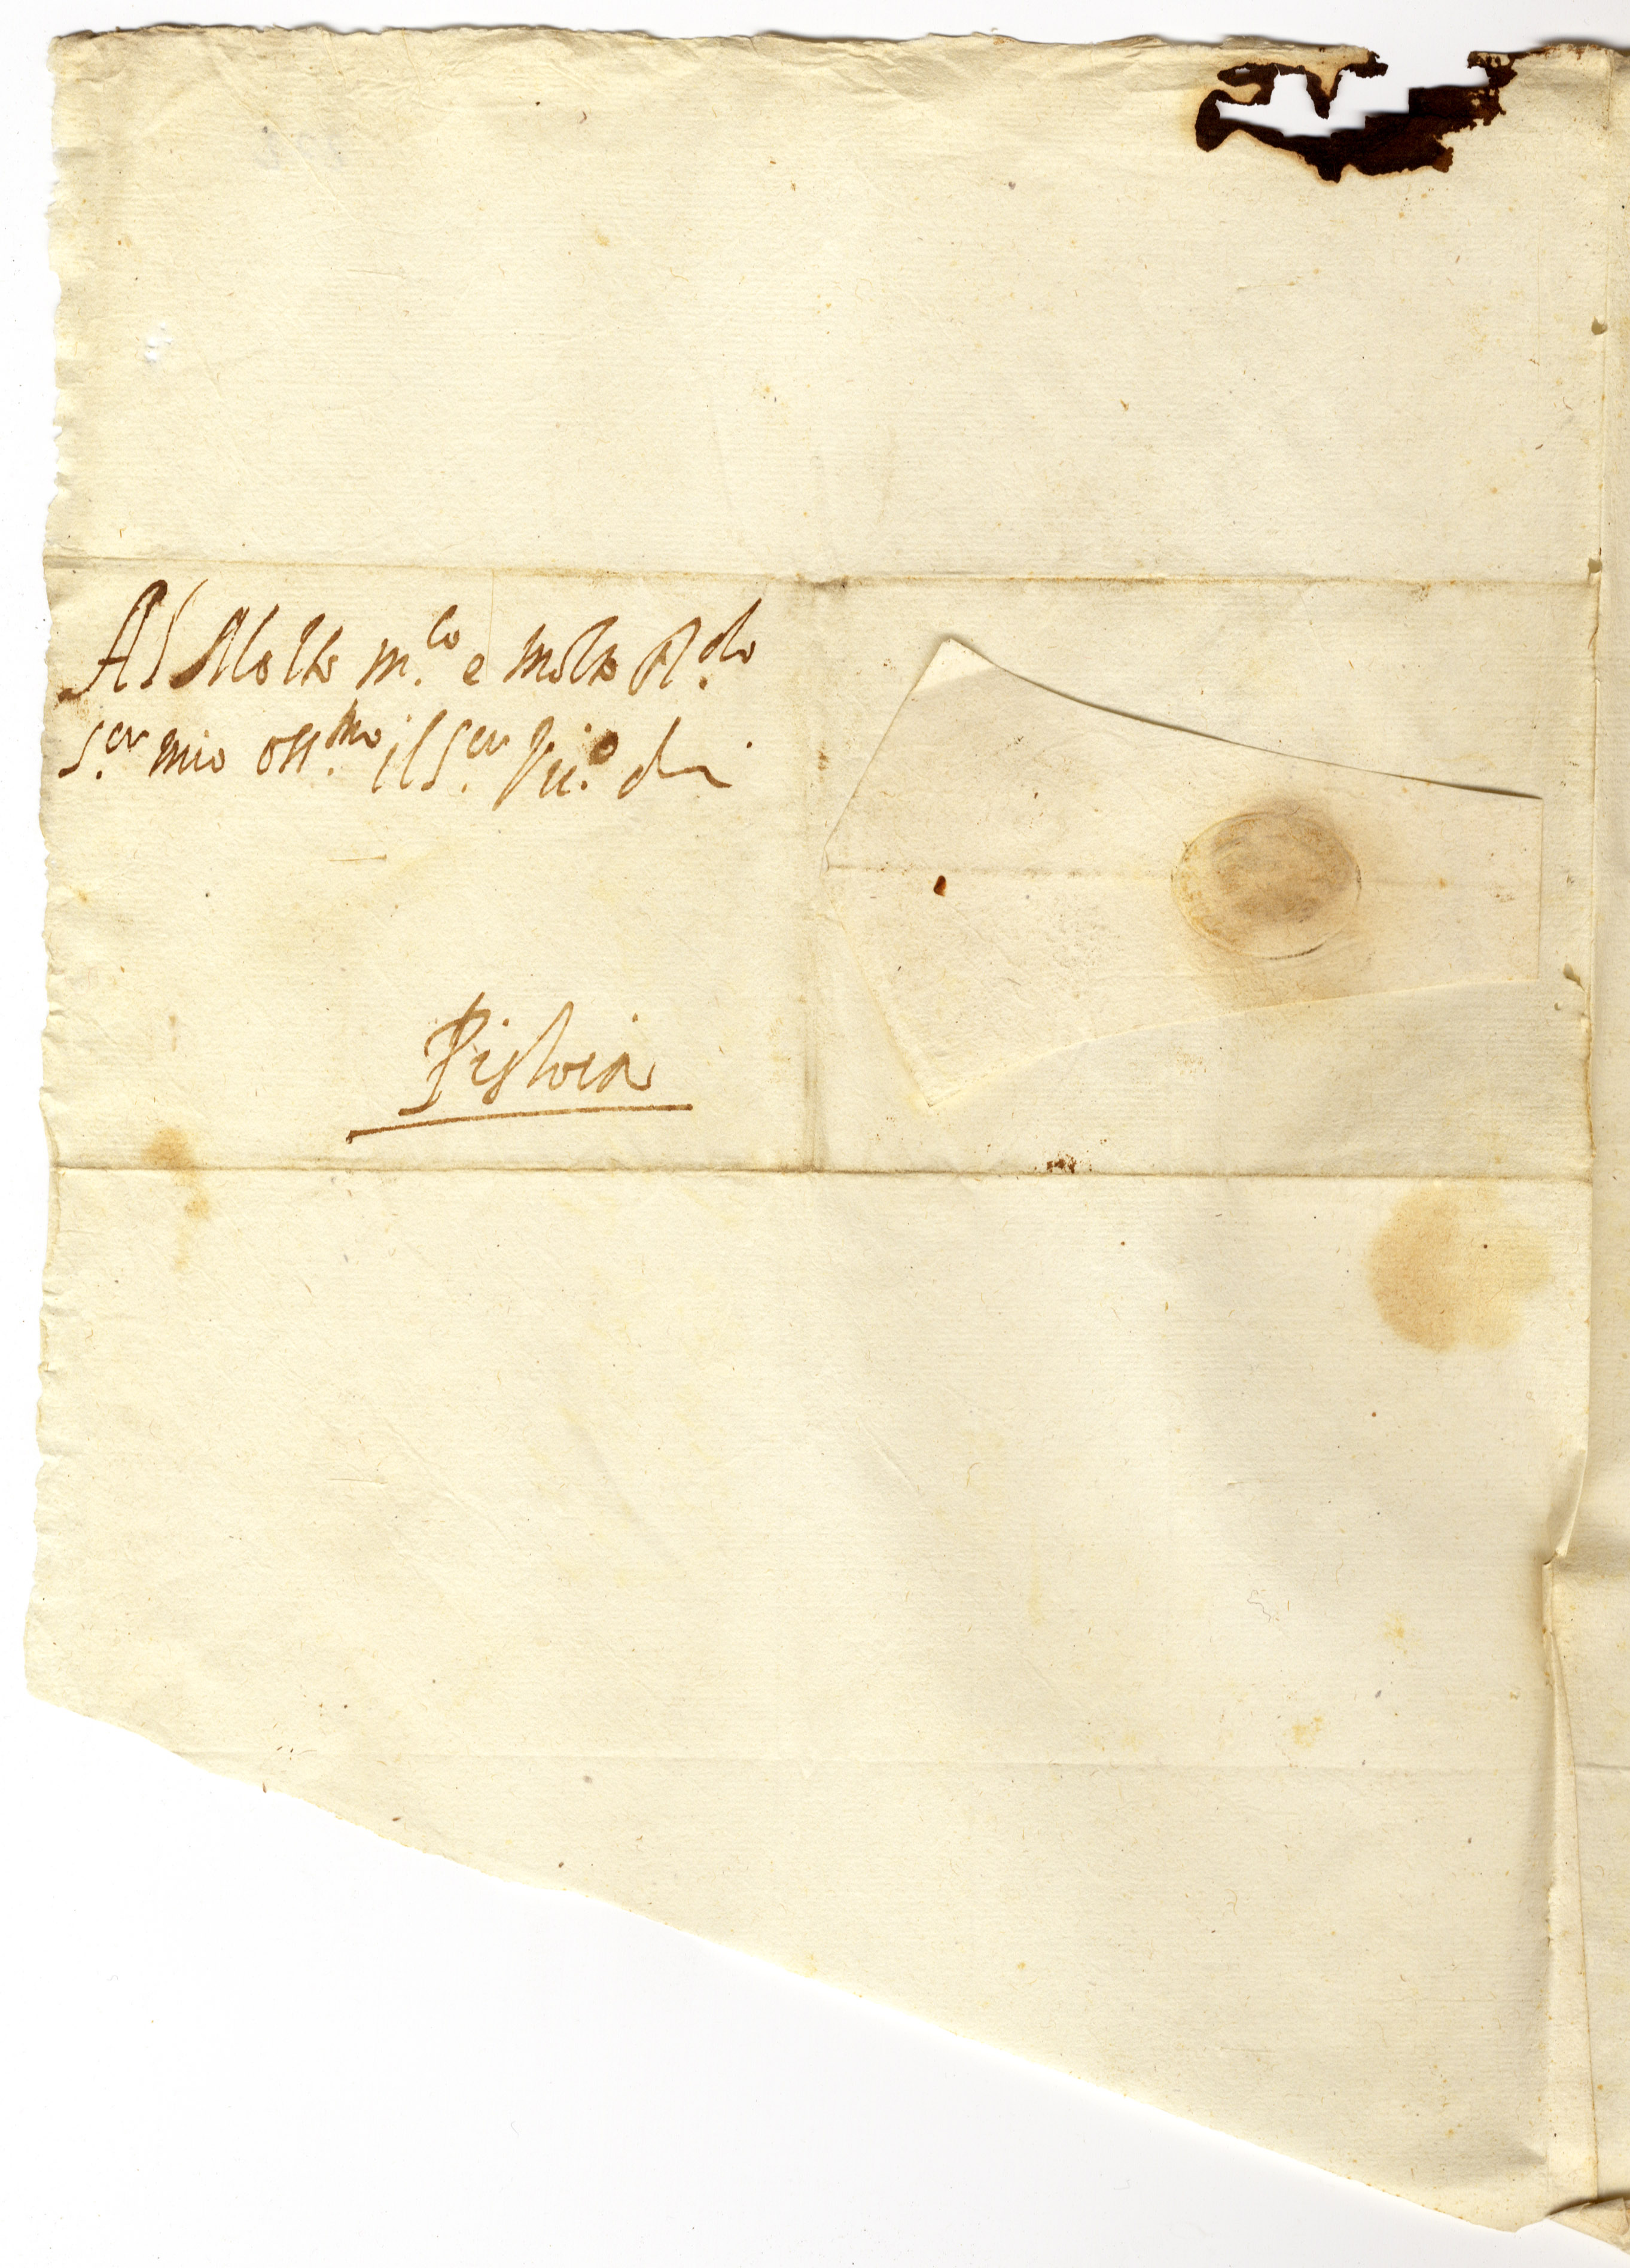 Al Molto m.co e molto R.do
S.or mio oss.mo il S.or Vic.o di
Pistoia